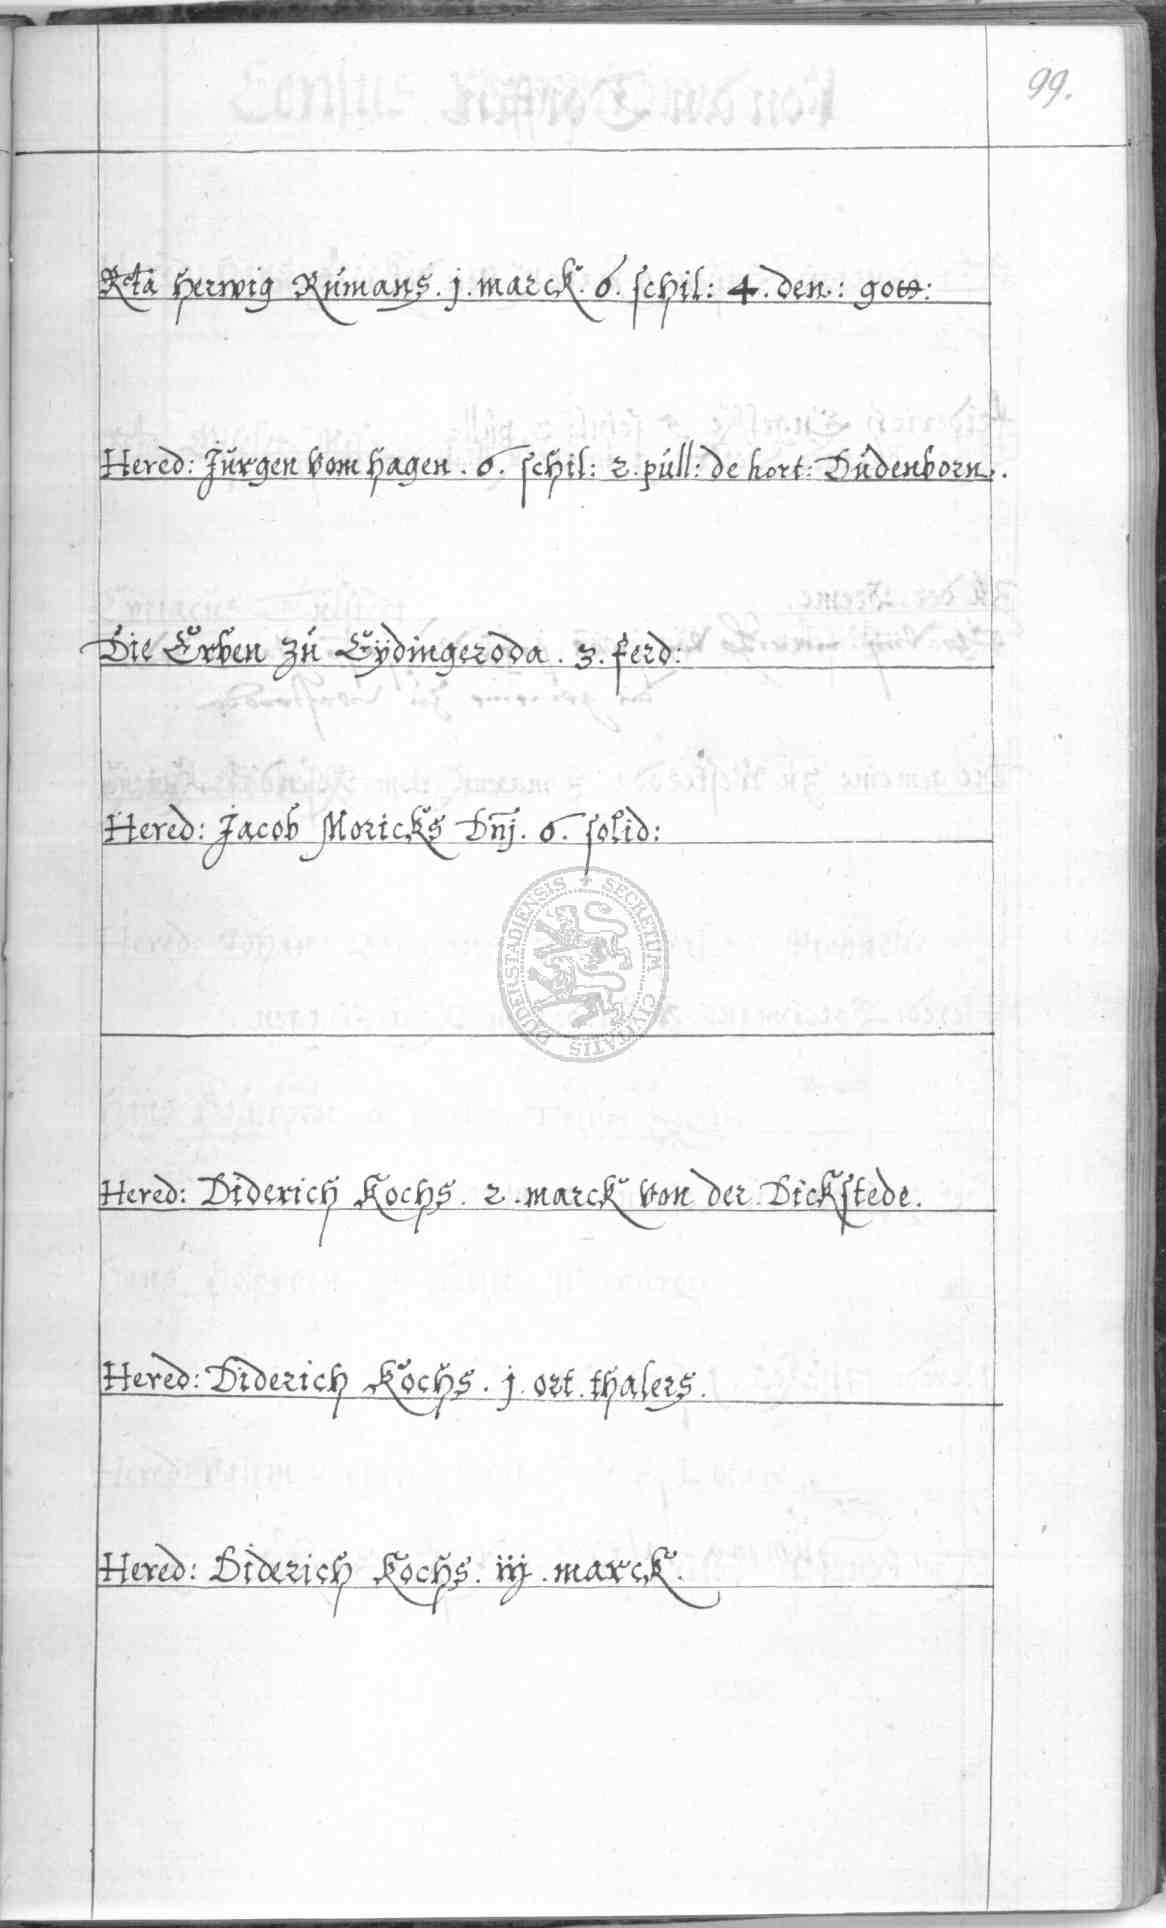 99.
Rcta Herwig Rumans. j. marck. 6. schil: 4. den: gott:
Hered: Jürgen vom Hagen. 6. schil: 2. pull: de hort: Dudenborn.
Die Erben zu Eÿdingeroda. 3. ferd:
Hered: Jacob Moricks Dnj. 6. solid:
SECRETUM CIVITATIS DUDERSTADIENSIS
Hered: Diderich Kochs. 2. marck von der Dickstede.
Hered: Diderich Kochs. j. ort. thalers.
Hered: Diderich Kochs. iij. marck.